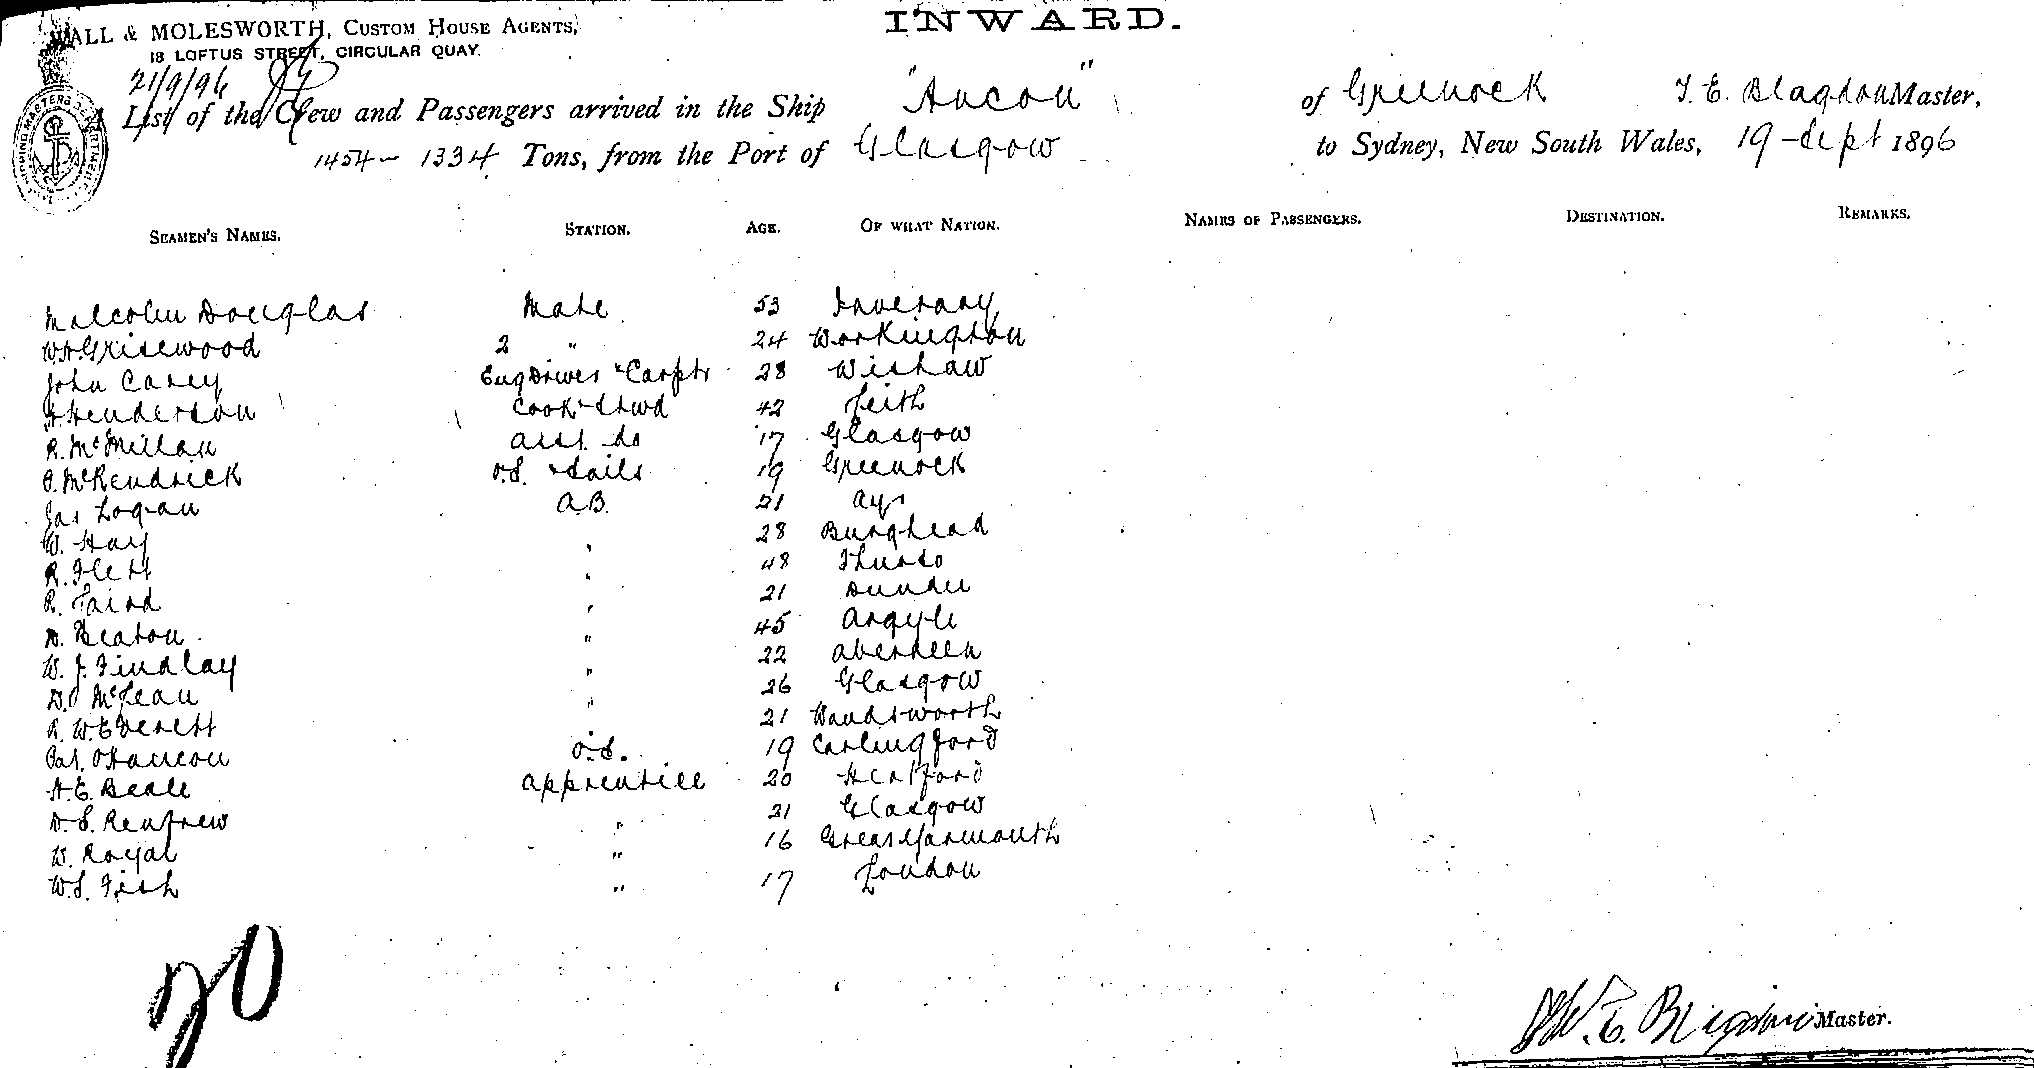 WALL & MOLESWORTH, CUSTOM HOUSE AGENTS,
INWARD.
18 LOFTUS STREET, CIRCULAR QUAY.
21/9/96
A List of the Crew and Passengers arrived in the Ship "Ancon" of Greenock T. E. Blagdon Master,
1454 - 1334 Tons, from the Port of Glasgow to Sydney, New South Wales, 19 - Sept 1896
SEAMEN'S NAMES. STATION. AGE. OF WHAT NATION. NAMES OF PASSENGERS. DESTINATION. REMARKS.
Malcolm Douglas Mate 53 Inverary
W.H. Grisewood 2 " 24 Workington
John Carey Eng Driver & Carptr 28 Wishaw
Henderson Cook & Stwd 42 Leith
R. McMillan asst do 17 Glasgow
McKendrick O.S. & Sails 19 Greenock
Jas Logan A.B. 21 Ayr
W. Hay " 28 Burghead
R. Flett " 48 Thurso
R. Laird " 21 Dundee
D. Beaton " 45 Argyle
W. J. Findlay " 22 Aberdeen
D. McLean " 26 Glasgow
R. W. Everett " 21 Wandsworth
Pat. O'Hanlon O.S. 19 Carlingford
H. E. Beale apprentice 20 Hertford
D. S. Renfrew " 21 Glasgow
W. Royal " 16 Great Yarmouth
W. S. Fish " 17 London
20
E. Blagdon Master.